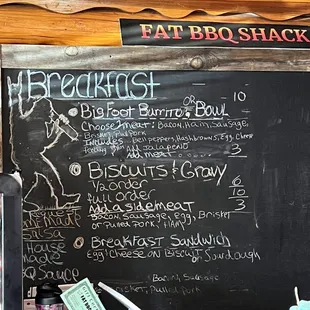 FAT BBQ SHACK
Breakfast
Big Foot Burrito OR Bowl 10
Choose meat: Bacon, Ham, Sausage,
Brisket, Pulled Pork
Includes Bell peppers, Hashbrowns, Egg, Cheese
Add Jalapeño
Add meat 3
Biscuits & Gravy
1/2 order 6
full order 10
Add a side meat 3
Bacon, Sausage, Egg, Brisket
or Pulled Pork, Ham
Breakfast Sandwich
Egg & Cheese on Biscuit or Sourdough
Bacon, Sausage
Pulled Pork
Salsa
House
made
BQ Sauce